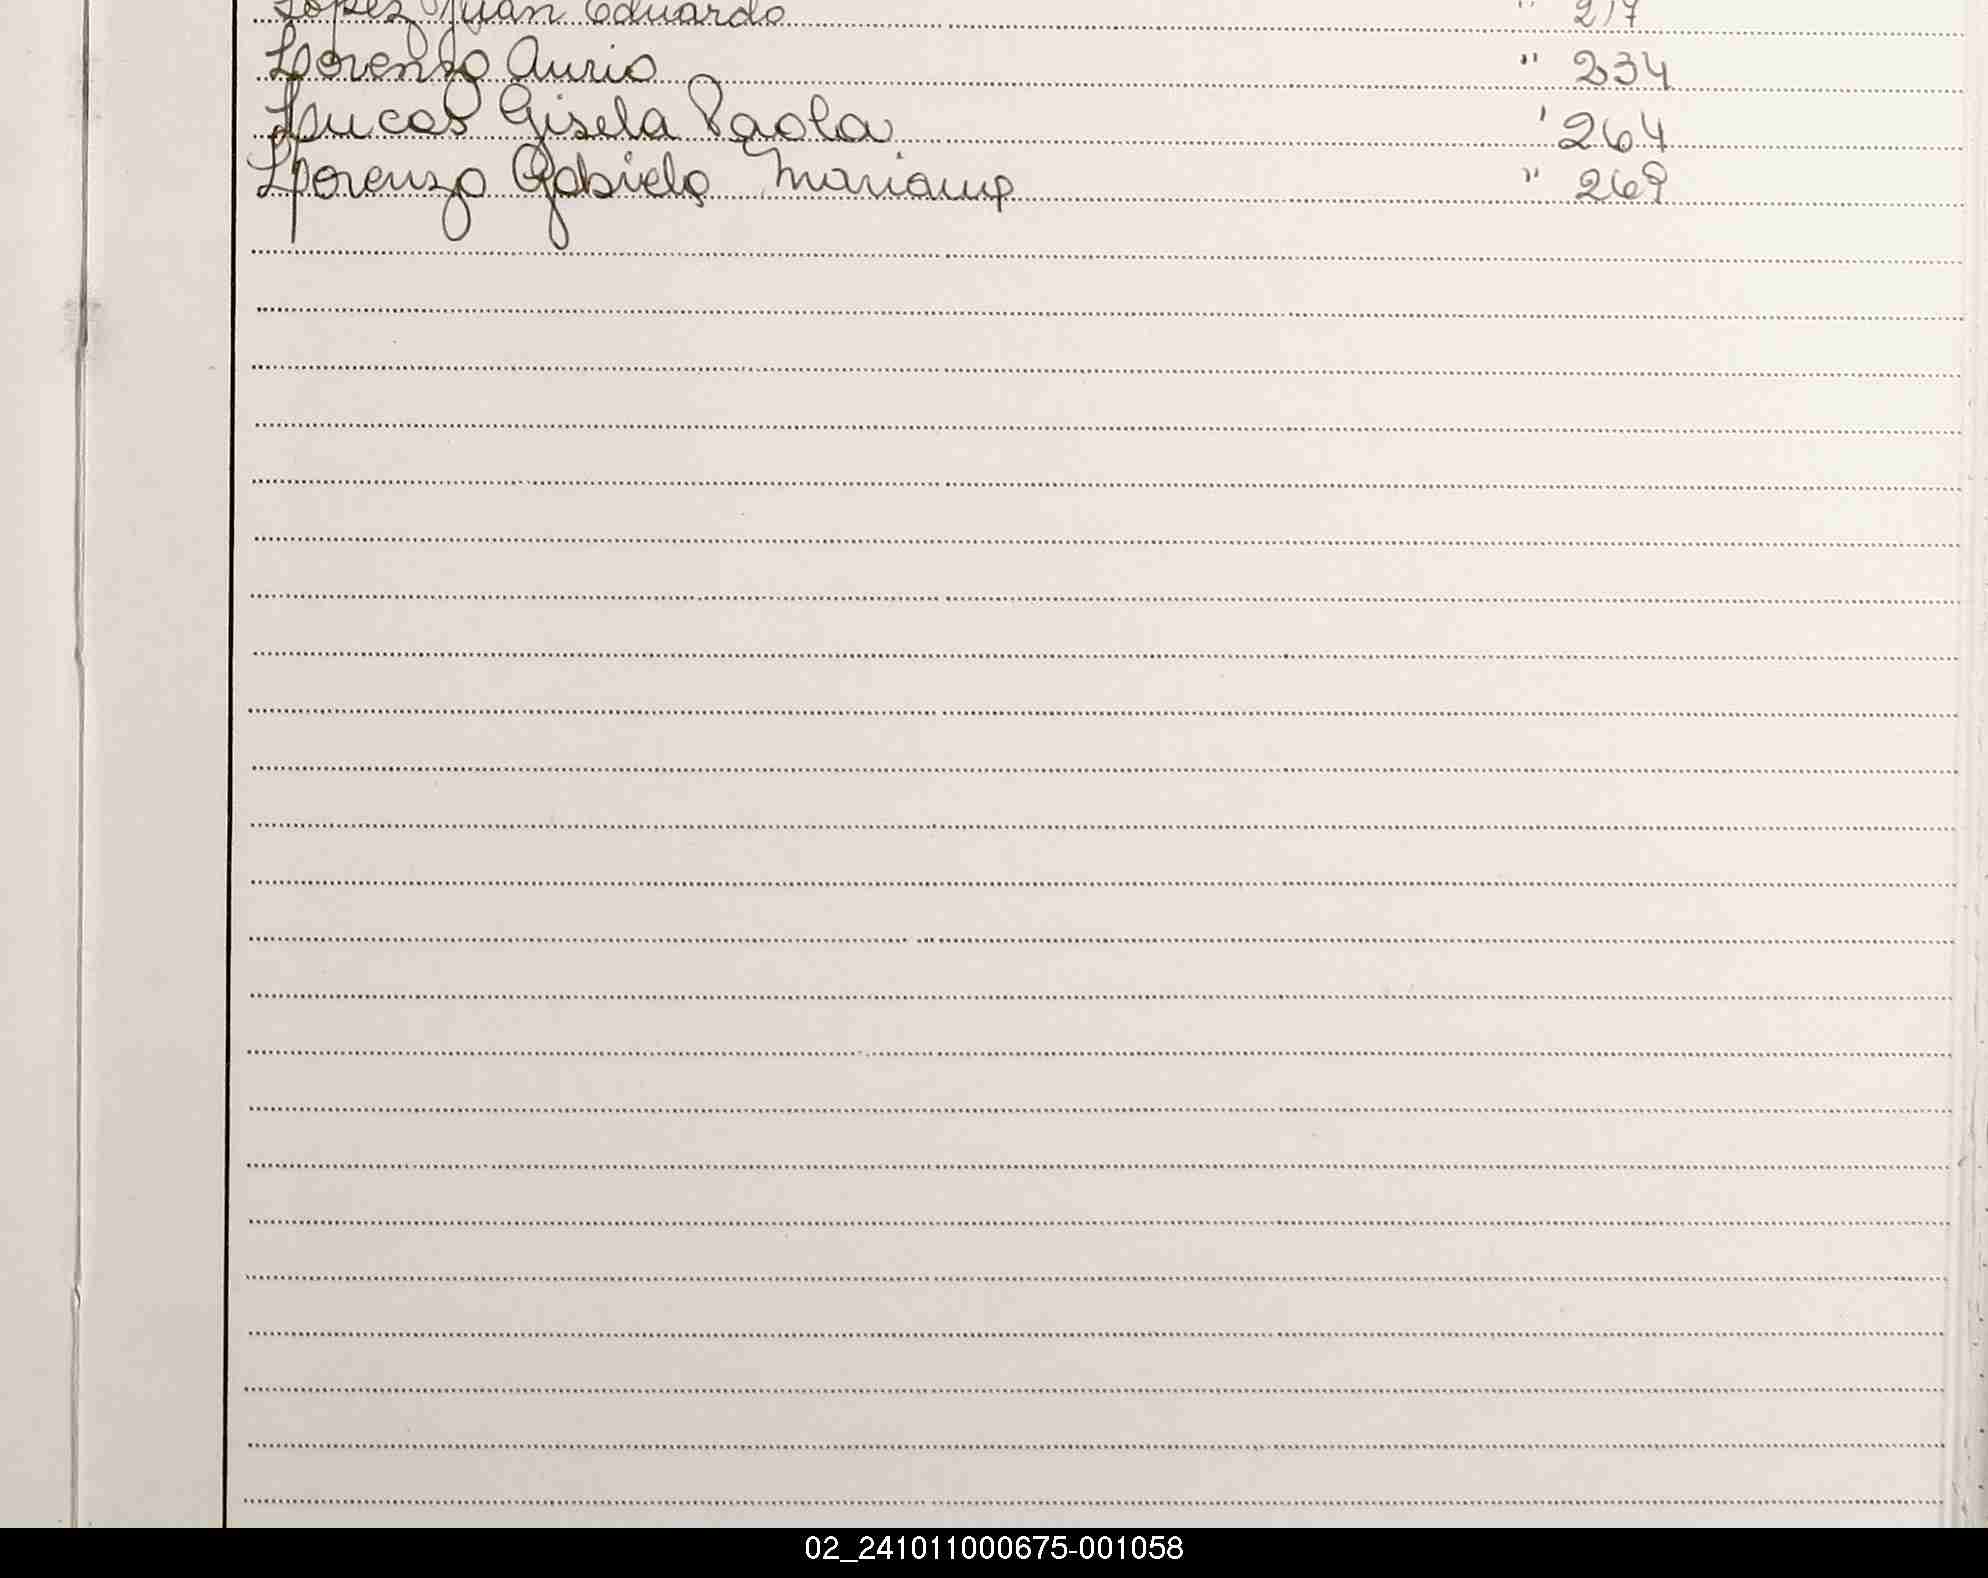 Lopez Juan Eduardo " 217
Lorenzo Auria " 234
Lucas Gisela Paola ' 264
Lorenzo Gabriela Mariana " 269
02_241011000675-001058